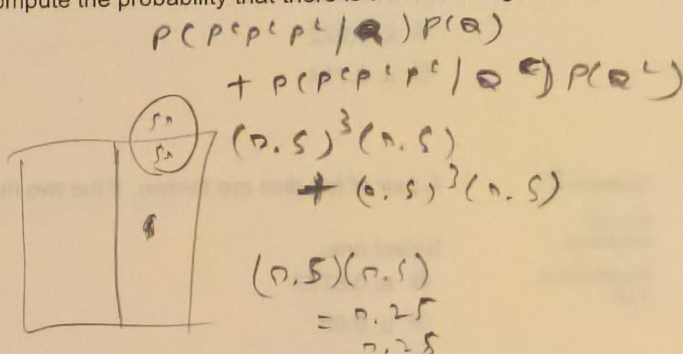 ompute the probability that there is
P(PᶜPᶜPᶜ/Q)P(Q)
+ P(PᶜPᶜPᶜ/Qᶜ)P(Qᶜ)
(0.5)³(0.5)
+ (0.5)³(0.5)
(0.5)(0.5)
= 0.25
0.25